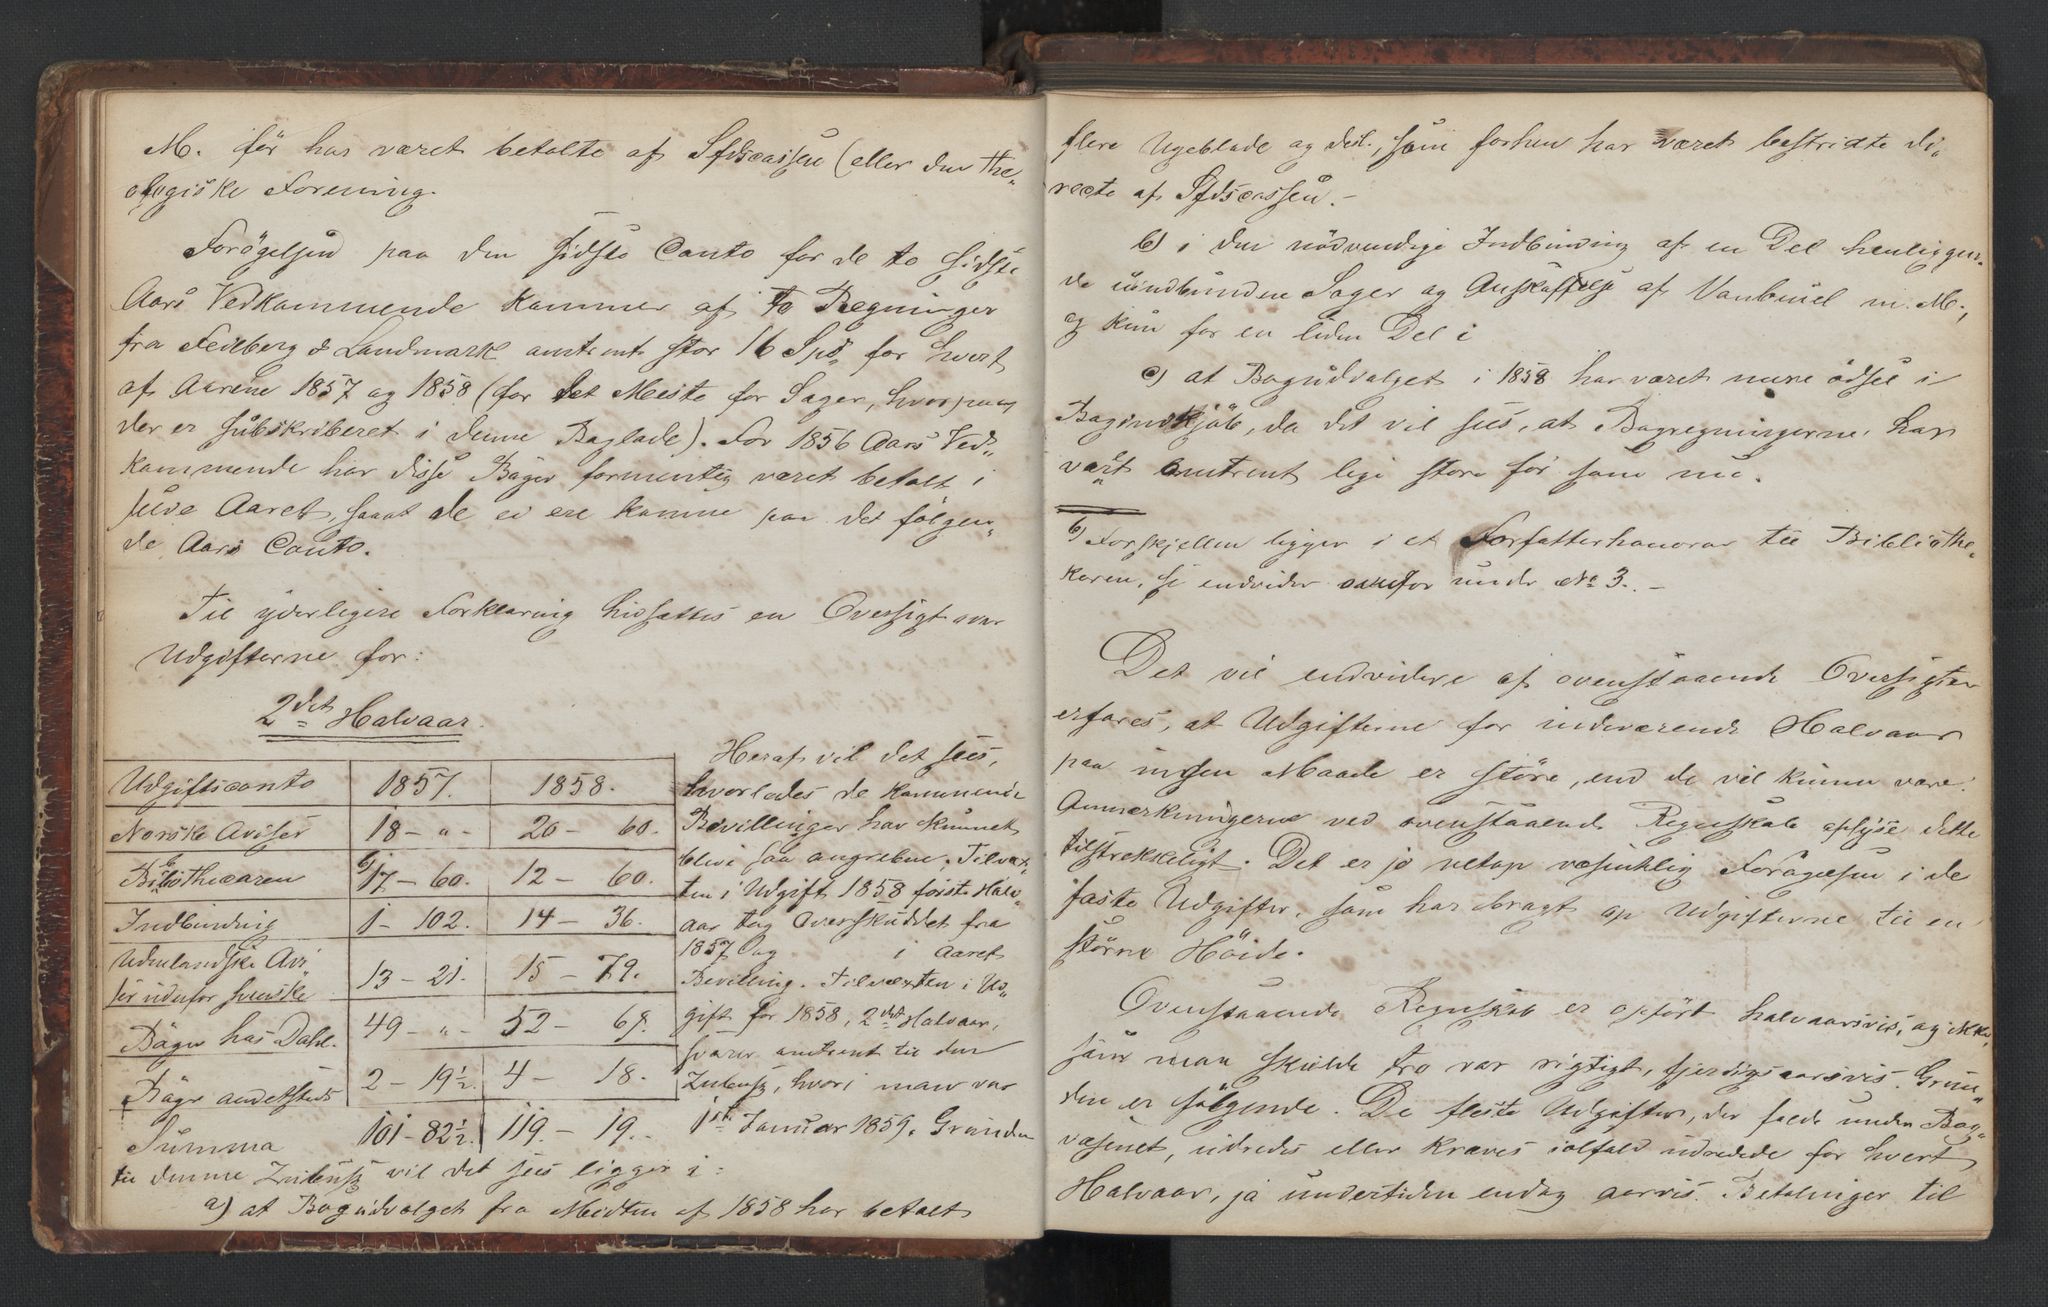 M. før har været betalte af Sfdscassen (eller den the„
ologiske Forening.
Forøgelsen paa den sidste Conto for de to sidste
Aars Vedkommende kommer af to Regninger
fra Feilberg & Landmark omtrent stor 16 Spd„ for hvert
af Aarene 1857 og 1858 (for det Meste for Sager, hvorpaa
der er subskriberet i denne Boglade). For 1856 Aars Ved„
kommende har disse Bøger formentlig været betalt i
selve Aaret, saaat de ei ere komne paa det følgen„
de Aars Conto.
Til yderligere Forklaring hidsættes en Oversigt over
Udgifterne for:
2det Halvaar.
Udgiftsconto 1857. 1858.
Norske Aviser 18 - „ - 20 - 60.
Bibliothecaren b) 17 - 60. 12 - 60.
Indbinding 1 - 102. 14 - 36.
Udenlandske Avi„
ser udenfor svenske 13 - 21. 15 - 79.
Bøger hos Dahl. 49 - „ - 52 - 68.
Bøger andetsteds 2 - 19½. 4 - 18.
Summa 101 - 82½. 119. - 19. -
Heraf vil det sees,
hvorledes de
Bevillinger har kunnet
blive saa angrebne. Tilvæx„
ten i Udgift 1858 første Halv„
aar tog Overskuddet fra
1857 og i Aaret
Bevilling. Tilvæxten i Ud„
gift for 1858, 2det Halvaar,
svarer omtrent til den
, hvori man var
1ste Januar 1859. Grunden
til denne vil det sees ligger i:
a) at Bogudvalget fra Midten af 1858 har betalt
flere Ugeblade og desl., som forhen har været bestridte di„
recte af Sfdscassen. -
b) i den nødvendige Indbinding af en Del henliggen„
de uindbundne Sager og Anskaffelse af Vanbuel m. M.,
og kun for en liden Del i
c) at Bogudvalget i 1858 har været mere ødsel i
Bogindkjøb, da det vil sees, at Bogregningerne har
vært omtrent lige store før som nu.
b) Forskjellen ligger i et Forfatterhonorar til Bibliothe„
karen, se endvider ovenfor under No 3. -
Det vil endvidere af ovenstaaende Oversigter
erfares, at Udgifterne for indeværende Halvaar
paa ingen Maade er større, end de vil kunne være.
Anmærkningerne ved ovenstaaende Regnskab oplyse dette
tilstrekkeligt. Det er jo netop væsentlig Forøgelsen i de
faste Udgifter, som har bragt op Udgifterne til en
større Høide.
Ovenstaaende Regnskab er opført halvaarsvis, og ikke,
som man skulde tro var rigtigt, fjerdingsaarsvis. Grun„
den er følgende. De fleste Udgifter, der falde under Bog„
væsenet, udredes eller kræves ialfald udredede for hvert
Halvaar, ja undertiden endog aarvis. Betalinger til